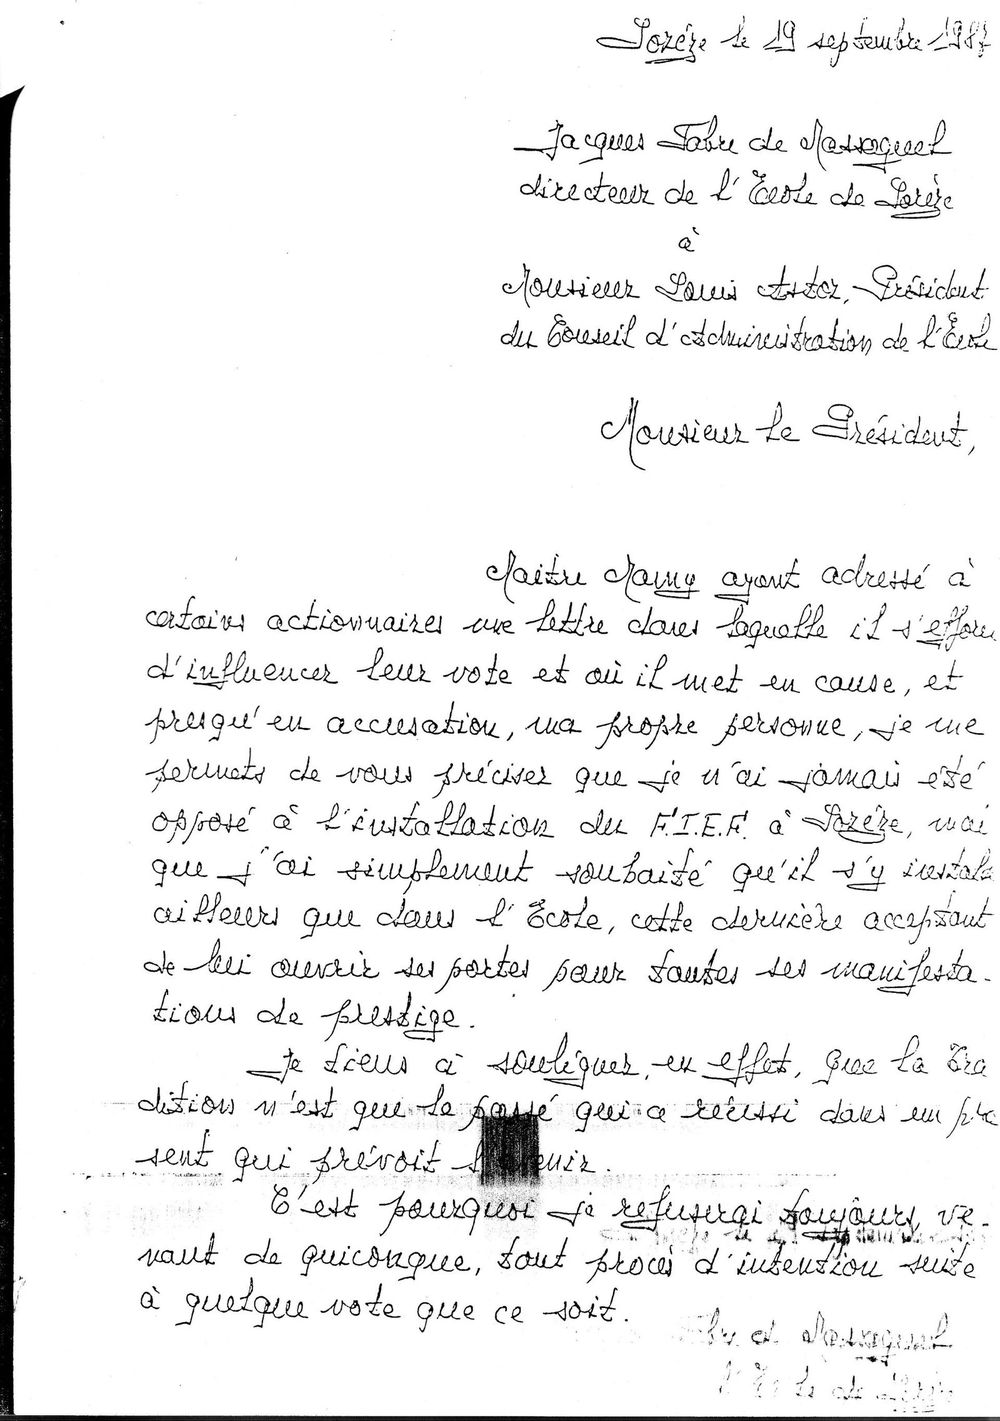 Sorèze le 19 septembre 1987
Jacques Fabre de Massaguel
directeur de l'Ecole de Sorèze
à
Monsieur Louis Astor, Président
du Conseil d'Administration de l'Ecole
Monsieur le Président,
Maître Mamy ayant adressé à
certains actionnaires une lettre dans laquelle il s'efforce
d'influencer leur vote et où il met en cause, et
presqu'en accusation, ma propre personne, je me
permets de vous préciser que je n'ai jamais été
opposé à l'installation du F.I.E.F. à Sorèze, mai
que j'ai simplement souhaité qu'il s'y instal
ailleurs que dans l'Ecole, cette dernière acceptant
de lui ouvrir ses portes pour toutes ses manifesta-
tions de prestige.
Je tiens à souligner, en effet, que la Tra
dition n'est que le passé qui a réussi dans un pré
sent qui prévoit l'avenir.
C'est pourquoi je refuserai toujours, ve-
nant de quiconque, tout procès d'intention suite
à quelque vote que ce soit.
de Massaguel